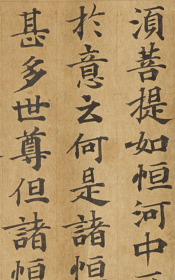 須菩提如恒河中
於意云何是諸恒
甚多世尊但諸恒